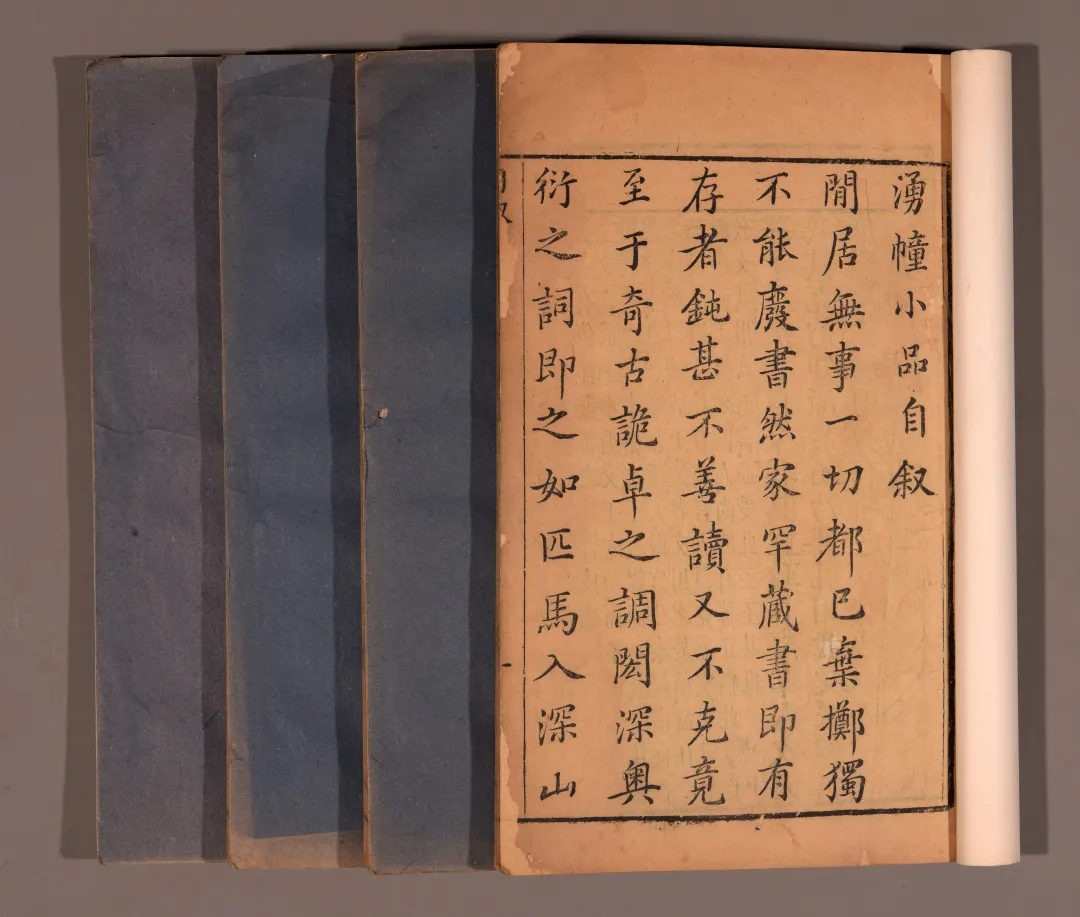 湧幢小品自叙
閒居無事一切都已棄擲獨
不能廢書然家罕藏書即有
存者鈍甚不善讀又不克竟
至于奇古詭卓之調閎深奧
衍之詞即之如匹馬入深山
一